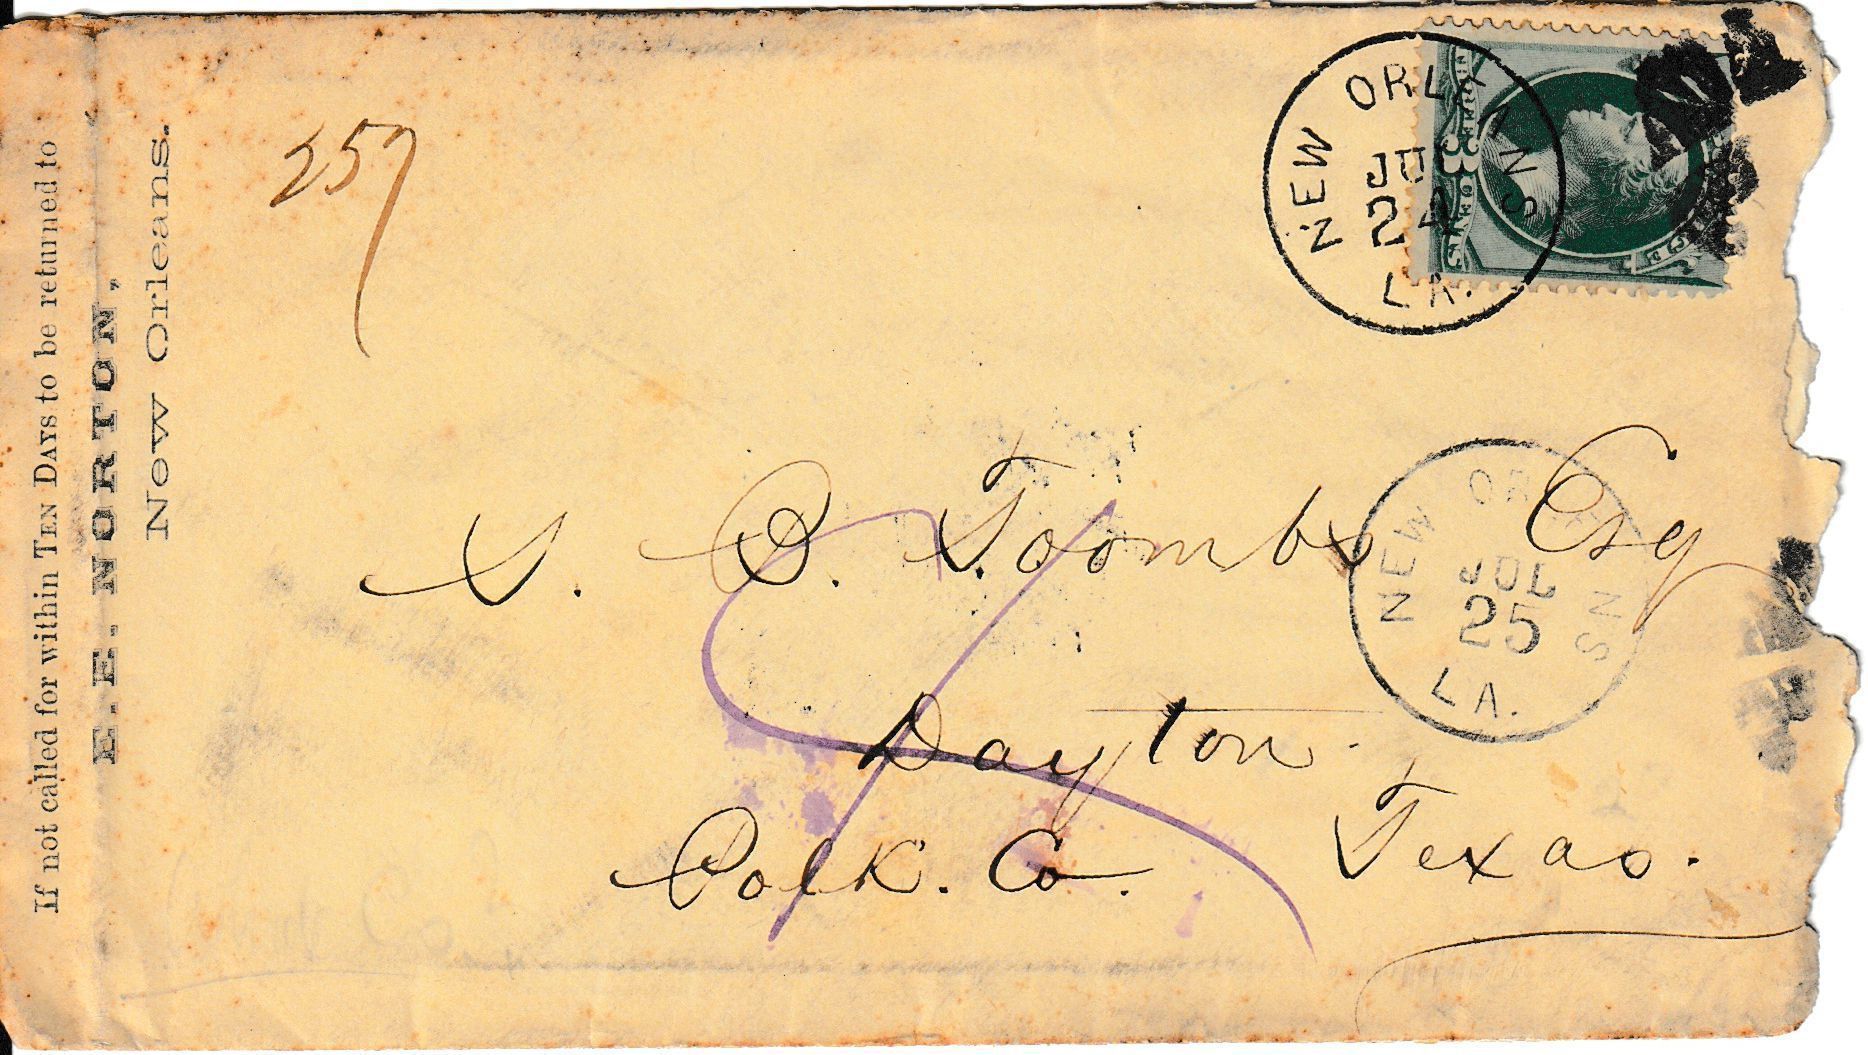 If not called for within TEN DAYS to be returned to
E. E. NORTON,
New Orleans.
257
NEW ORLEANS
JUL
24
LA.
3
S. P. Toombs Esq
NEW ORLEANS
JUL
25
LA.
Dayton.
Polk. Co. Texas.